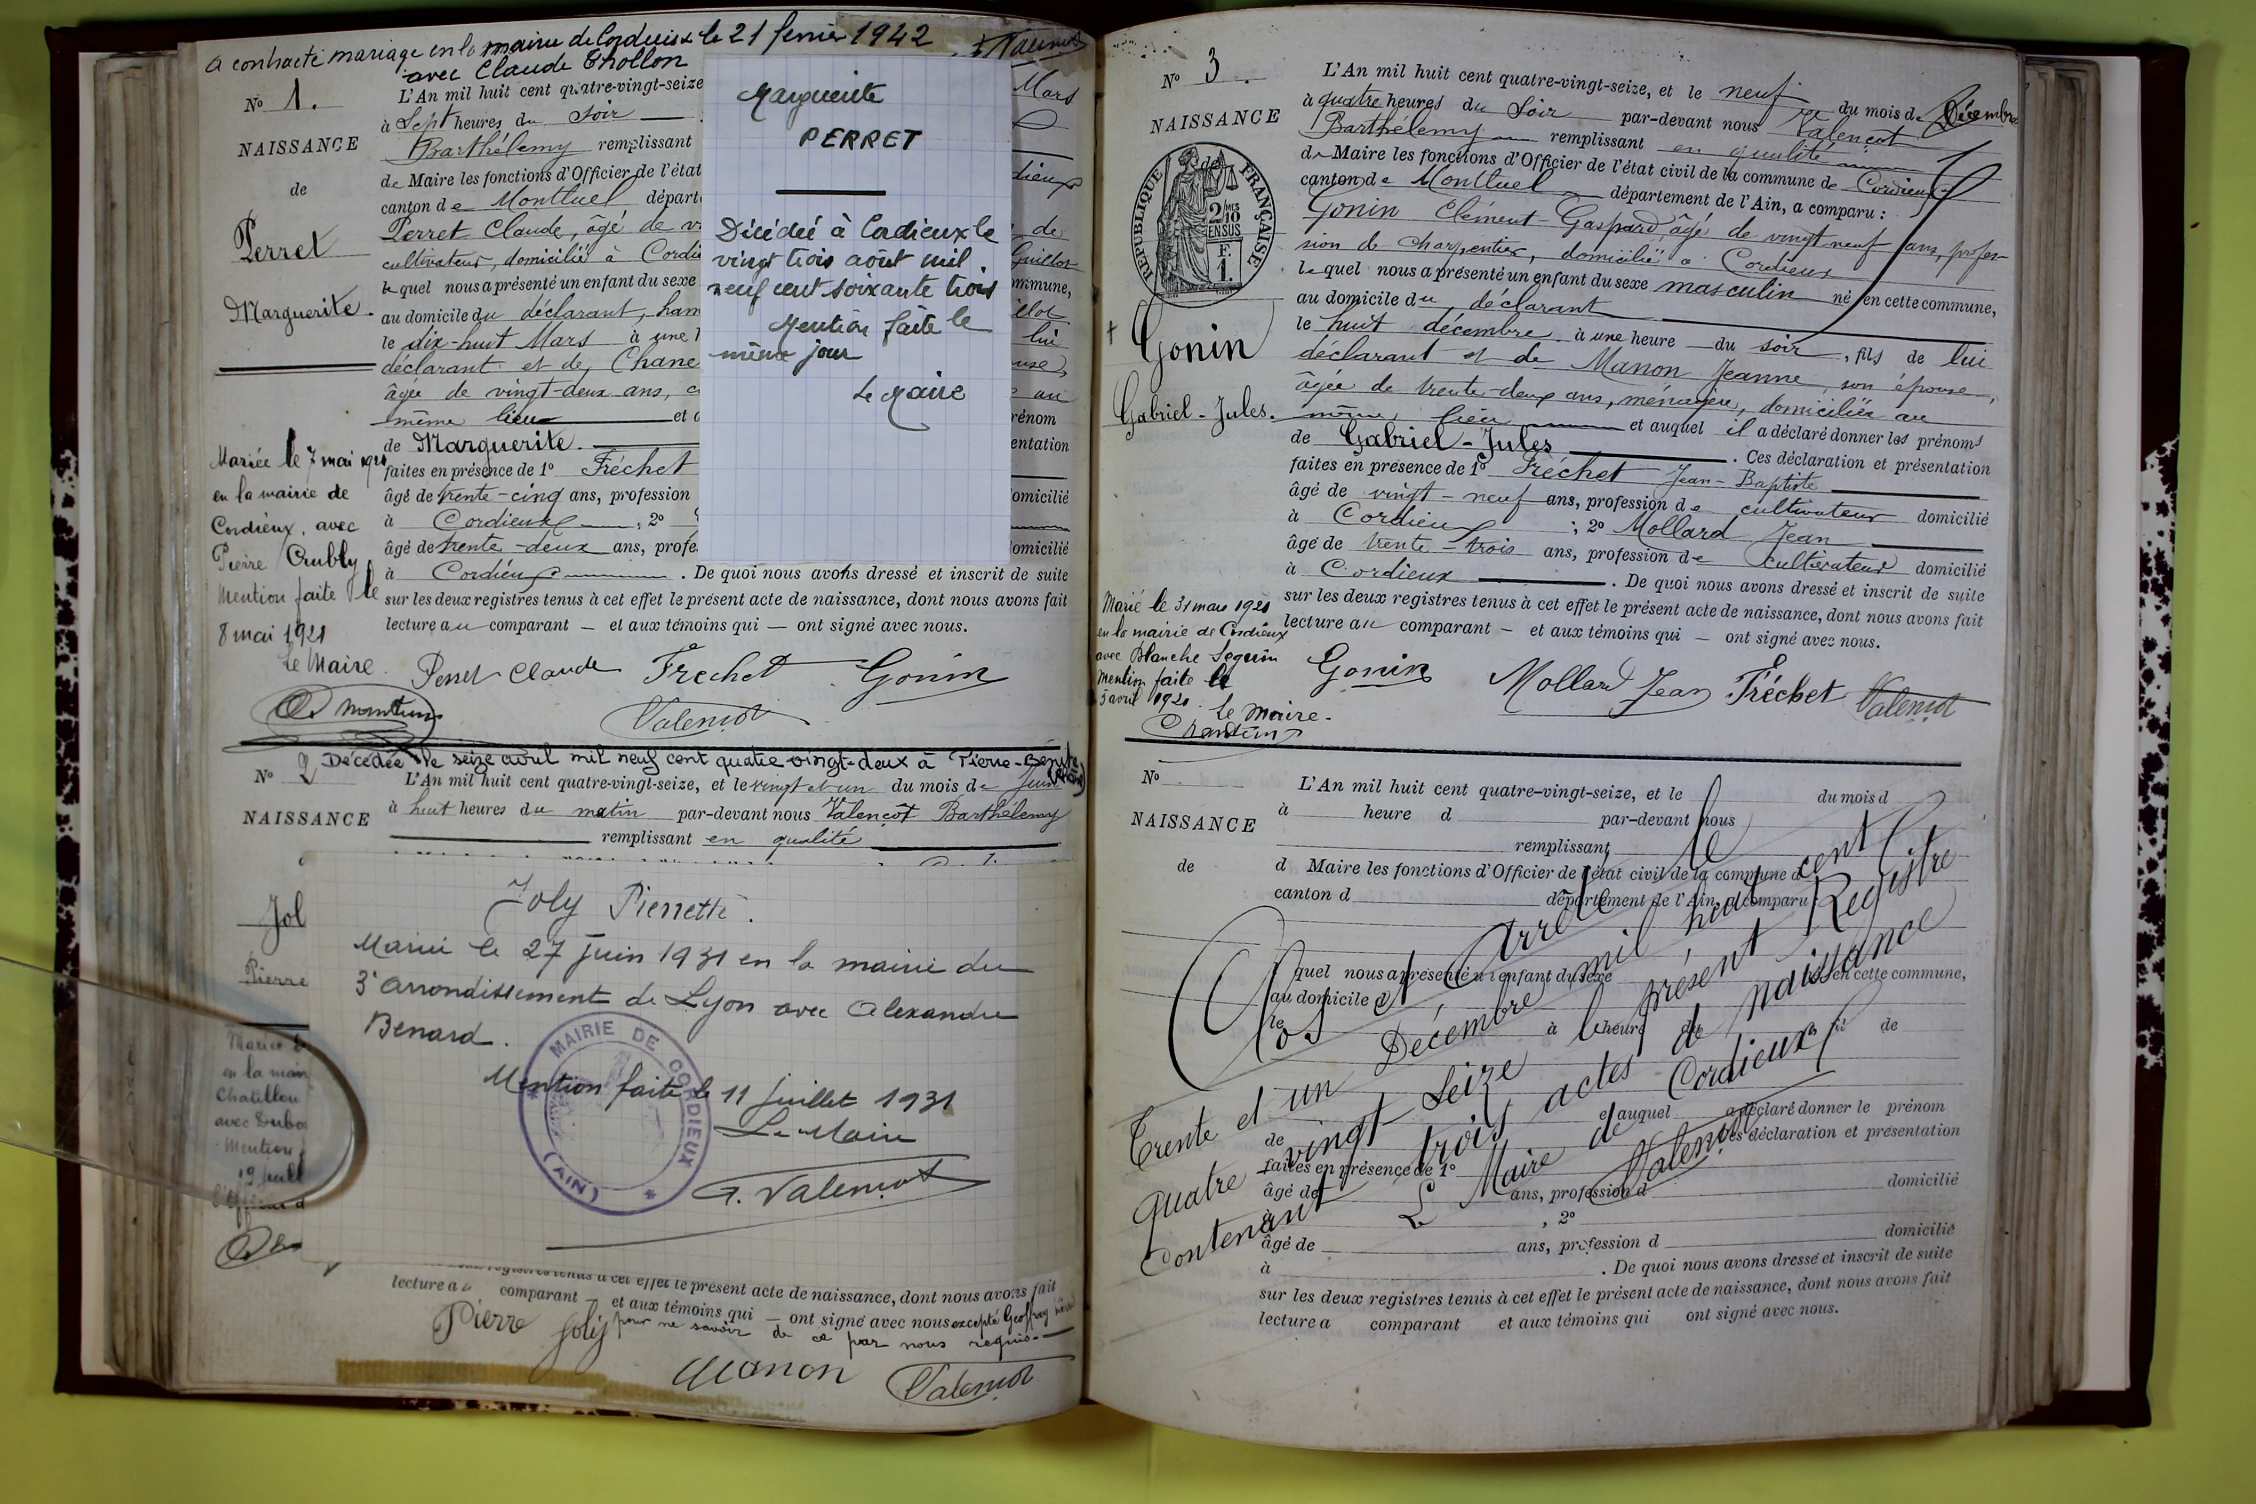 a contracté mariage en la mairie de Cordieux le 21 fevrier 1942
avec Claude Thollon
G. Valençot
No 1.
NAISSANCE
de
Perret
Marguerite.
L'An mil huit cent quatre-vingt-seize
Mars
à Sept heures du soir
Barthélemy remplissant
de Maire les fonctions d'Officier de l'état
dieux
canton de Montluel départ
Perret Claude, âgé de
de
cultivateur, domicilié à Cordi
Guillot
lequel nous a présenté un enfant du sexe
ommune,
au domicile du déclarant, ham
illot
le dix-huit Mars à une h
lui
déclarant et de Chane
ouse,
âgée de vingt-deux ans, c
au
même lieu et a
rénom
de Marguerite.
entation
faites en présence de 1o Fréchet
âgé de trente-cinq ans, profession
omicilié
à Cordieux ; 2o
âgé de trente-deux ans, profe
domicilié
à Cordieux . De quoi nous avons dressé et inscrit de suite
sur les deux registres tenus à cet effet le présent acte de naissance, dont nous avons fait
lecture au comparant — et aux témoins qui — ont signé avec nous.
Perret Claude Fréchet Gonin
Valençot
Mariée le 7 mai 1921
en la mairie de
Cordieux, avec
Pierre Crubly
Mention faite le
8 mai 1921
Le Maire.
Marguerite
PERRET
Décédée à Cordieux le
vingt trois août mil
neuf cent soixante trois
Mention faite le
même jour
Le Maire
Décédée le seize avril mil neuf cent quatre vingt-deux à Pierre-Bénite
(Rhône)
No 2
NAISSANCE
L'An mil huit cent quatre-vingt-seize, et le vingt et un du mois de Juin
à huit heures du matin par-devant nous Valençot Barthélemy
remplissant en qualité
Jol
Pierre
Mariée l
en la mair
Chatillon
avec Dubo
Mention
19 juill
l'Officier d
Joly Pierrette.
Mariée le 27 juin 1931 en la mairie du
3e arrondissement de Lyon avec Alexandre
Benard.
Mention faite le 11 juillet 1931
Le Maire
G. Valençot
MAIRIE DE CORDIEUX
* (AIN) *
registres tenus à cet effet le présent acte de naissance, dont nous avons fait
lecture au comparant — et aux témoins qui — ont signé avec nous excepté Geoffray
pour ne savoir de ce par nous requis.
Pierre Joly
Manon Valençot
No 3.
NAISSANCE
de
RÉPUBLIQUE FRANÇAISE
2/10
EN SUS
F.
1.
Gonin
Gabriel-Jules.
L'An mil huit cent quatre-vingt-seize, et le neuf du mois de Décembre
à quatre heures du Soir par-devant nous Valençot
Barthélemy remplissant en qualité
de Maire les fonctions d'Officier de l'état civil de la commune de Cordieux
canton de Montluel département de l'Ain, a comparu :
Gonin Clément-Gaspard âgé de vingt neuf ans, profes-
sion de charpentier, domicilié à Cordieux
lequel nous a présenté un enfant du sexe masculin né en cette commune,
au domicile du déclarant
le huit décembre à une heure du soir, fils de lui
déclarant et de Manon Jeanne, son épouse,
âgée de trente-deux ans, ménagère, domiciliée au
même lieu et auquel il a déclaré donner les prénoms
de Gabriel-Jules . Ces déclaration et présentation
faites en présence de 1o Fréchet Jean-Baptiste
âgé de vingt-neuf ans, profession de cultivateur domicilié
à Cordieux ; 2o Mollard Jean
âgé de trente-trois ans, profession de cultivateur domicilié
à Cordieux . De quoi nous avons dressé et inscrit de suite
sur les deux registres tenus à cet effet le présent acte de naissance, dont nous avons fait
lecture au comparant — et aux témoins qui — ont signé avec nous.
Gonin Mollard Jean Fréchet Valençot
Marié le 31 mars 1921
en la mairie de Cordieux
avec Blanche Seguin
Mention faite le
5 avril 1921.
Le Maire.
No
NAISSANCE
de
L'An mil huit cent quatre-vingt-seize, et le du mois d
à heure d par-devant nous
remplissant
d Maire les fonctions d'Officier de l'état civil de la commune d
canton d département de l'Ain, a comparu
quel nous a présenté un enfant du sexe né en cette commune,
au domicile d
le à heure du fi de
et auquel a déclaré donner le prénom
de Ces déclaration et présentation
faites en présence de 1o
âgé de ans, profession d domicilié
à , 2o
âgé de ans, profession d domicilié
à . De quoi nous avons dressé et inscrit de suite
sur les deux registres tenus à cet effet le présent acte de naissance, dont nous avons fait
lecture a comparant et aux témoins qui ont signé avec nous.
Clos et Arrêté le
Trente et un Décembre mil huit cent
quatre vingt seize le présent Registre
contenant trois actes de naissance
Le Maire de Cordieux
Valençot